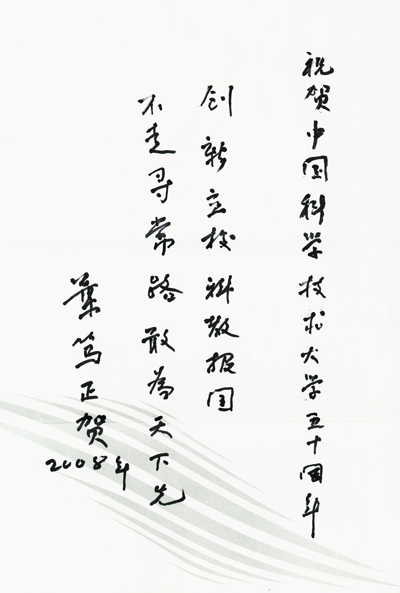 祝贺中国科学技术大学五十周年
创新立校 科教报国
不走寻常路 敢为天下先
叶笃正贺
2008年